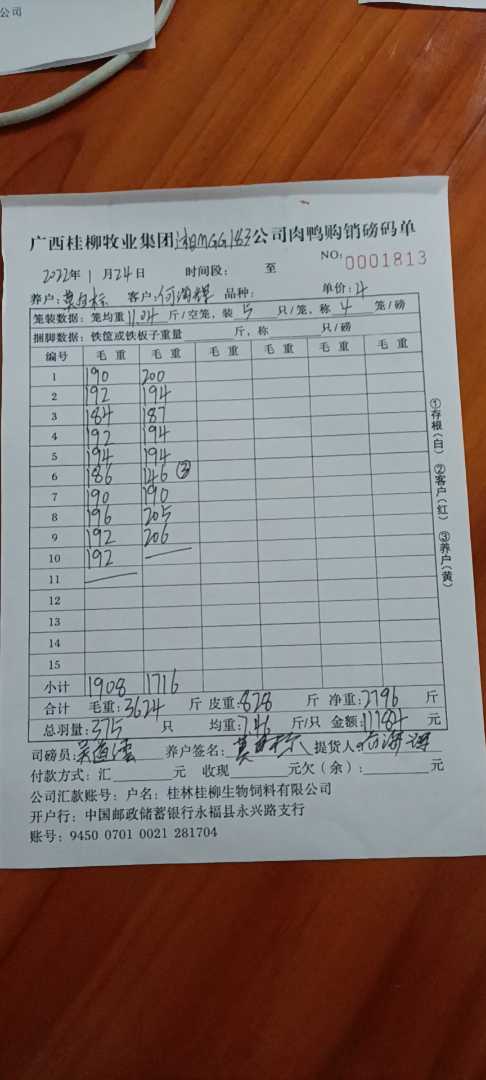 公司
广西桂柳牧业集团 公司肉鸭购销磅码单
NO: 0001813
2022年1月24日 时间段: 至
养户: 客户:何海 品种: 单价:4
笼装数据:笼均重11.04斤/空笼,装5只/笼,称4笼/磅
捆脚数据:铁筐或铁板子重量 斤,称 只/磅
编号 毛重 毛重 毛重 毛重 毛重 毛重
1 190 200
2 192 194
3 184 187
4 192 194
5 194 194
6 186 146 ③
7 190 190
8 196 205
9 192 206
10 192 —
11 —
12
13
14
15
小计 1908 1716
合计 毛重:3624斤 皮重:828斤 净重:2796斤
总羽量:375只 均重:7.46斤/只 金额:11184元
司磅员: 养户签名: 提货人:
付款方式:汇 元 收现 元欠(余): 元
公司汇款账号:户名:桂林桂柳生物饲料有限公司
开户行:中国邮政储蓄银行永福县永兴路支行
账号:9450 0701 0021 281704
①存根(白) ②客户(红) ③养户(黄)